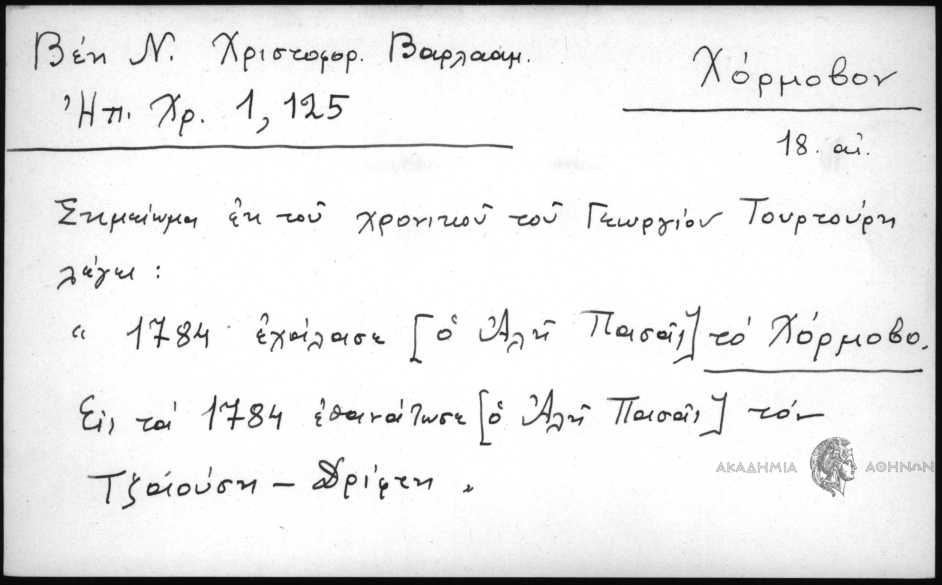 Βέη Ν. Χριστοφορ. Βαρλαάμ.
Ἠπ. Χρ. 1, 125
Χόρμοβον
18. αἰ.
Σημείωμα ἐκ τοῦ χρονικοῦ τοῦ Γεωργίου Τουρτούρη
λέγει :
" 1784 ἐχάλασε [ὁ Ἀλῆ Πασᾶς] τὸ Χόρμοβο.
Εἰς τὰ 1784 ἐθανάτωσε [ὁ Ἀλῆ Πασᾶς] τὸν
Τζαούση – Δρίφτη "
ΑΚΑΔΗΜΙΑ ΑΘΗΝΩΝ